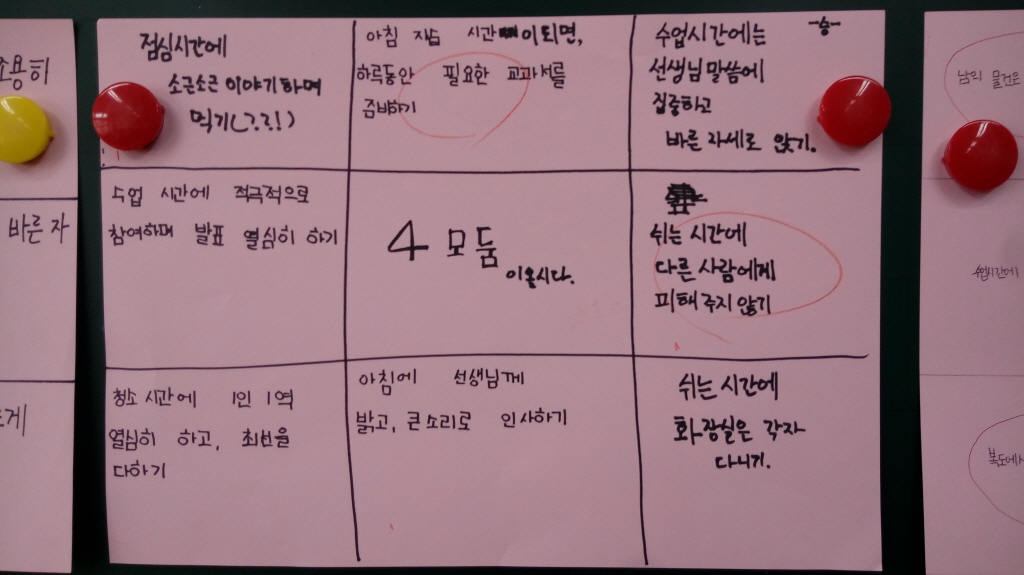 점심시간에
소근소근 이야기하며
먹기(?.?!)
아침 자습 시간이 되면,
하루동안 필요한 교과서를
준비하기
수업시간에는
선생님 말씀에
집중하고
바른 자세로 앉기.
수업 시간에 적극적으로
참여하며 발표 열심히 하기
4 모둠
이올시다.
쉬는 시간에
다른 사람에게
피해 주지 않기
청소 시간에 1인 1역
열심히 하고, 최선을
다하기
아침에 선생님께
밝고, 큰 소리로 인사하기
쉬는 시간에
화장실은 각자
다니기.
조용히
바른 자
남의 물건은
수업시간에
복도에서